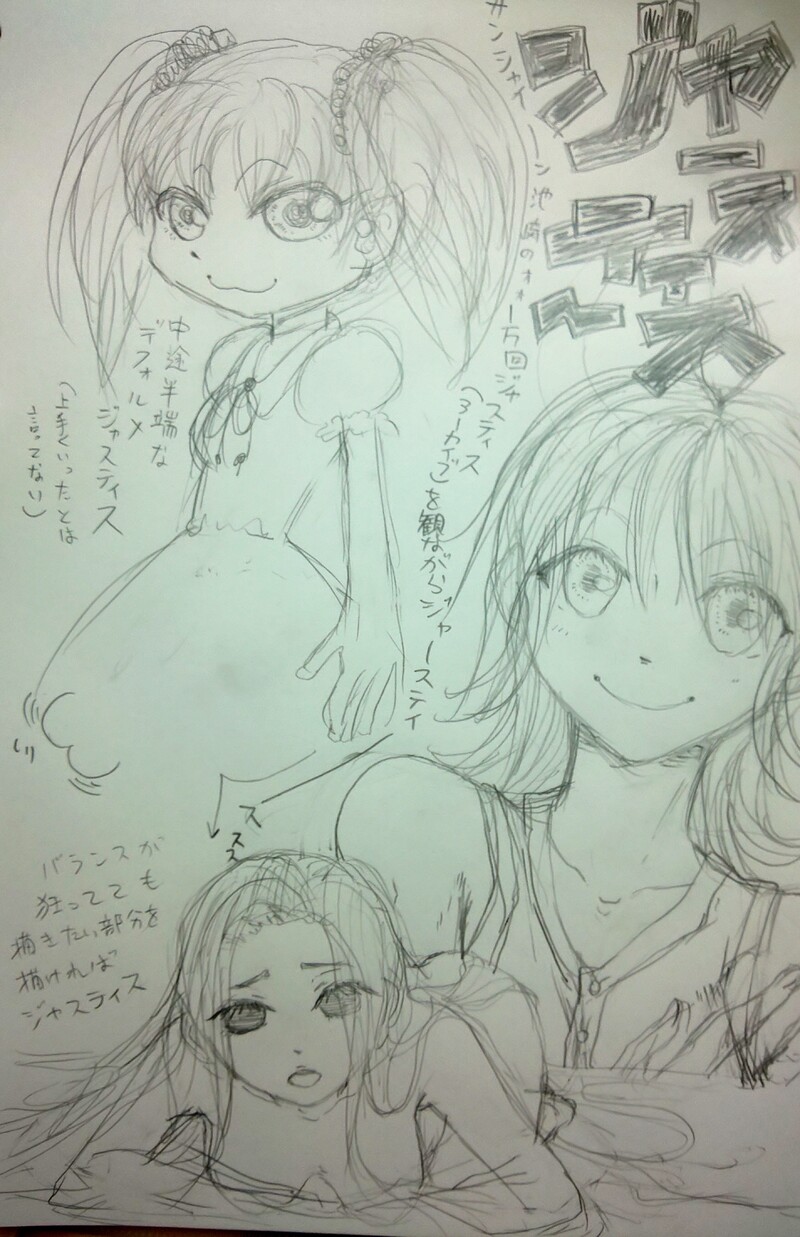 ジャースティース
サンシャイーン池崎のオォー万回ジャスティス
(3ーカイブ)を観ながらジャースティ
ススス
中途半端な
デフォルメ
ジャスティス
(上手くいったとは
言ってない)
バランスが
狂ってても
描きたい部分を
描ければ
ジャスティス